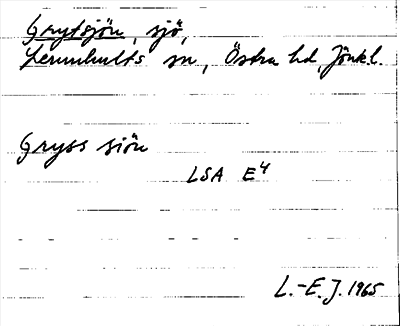 Grytsjön, sjö,
Lemnhults sn, Östra hd, Jönkl.
Gryss siön
LSA E4
L.-E. J. 1965